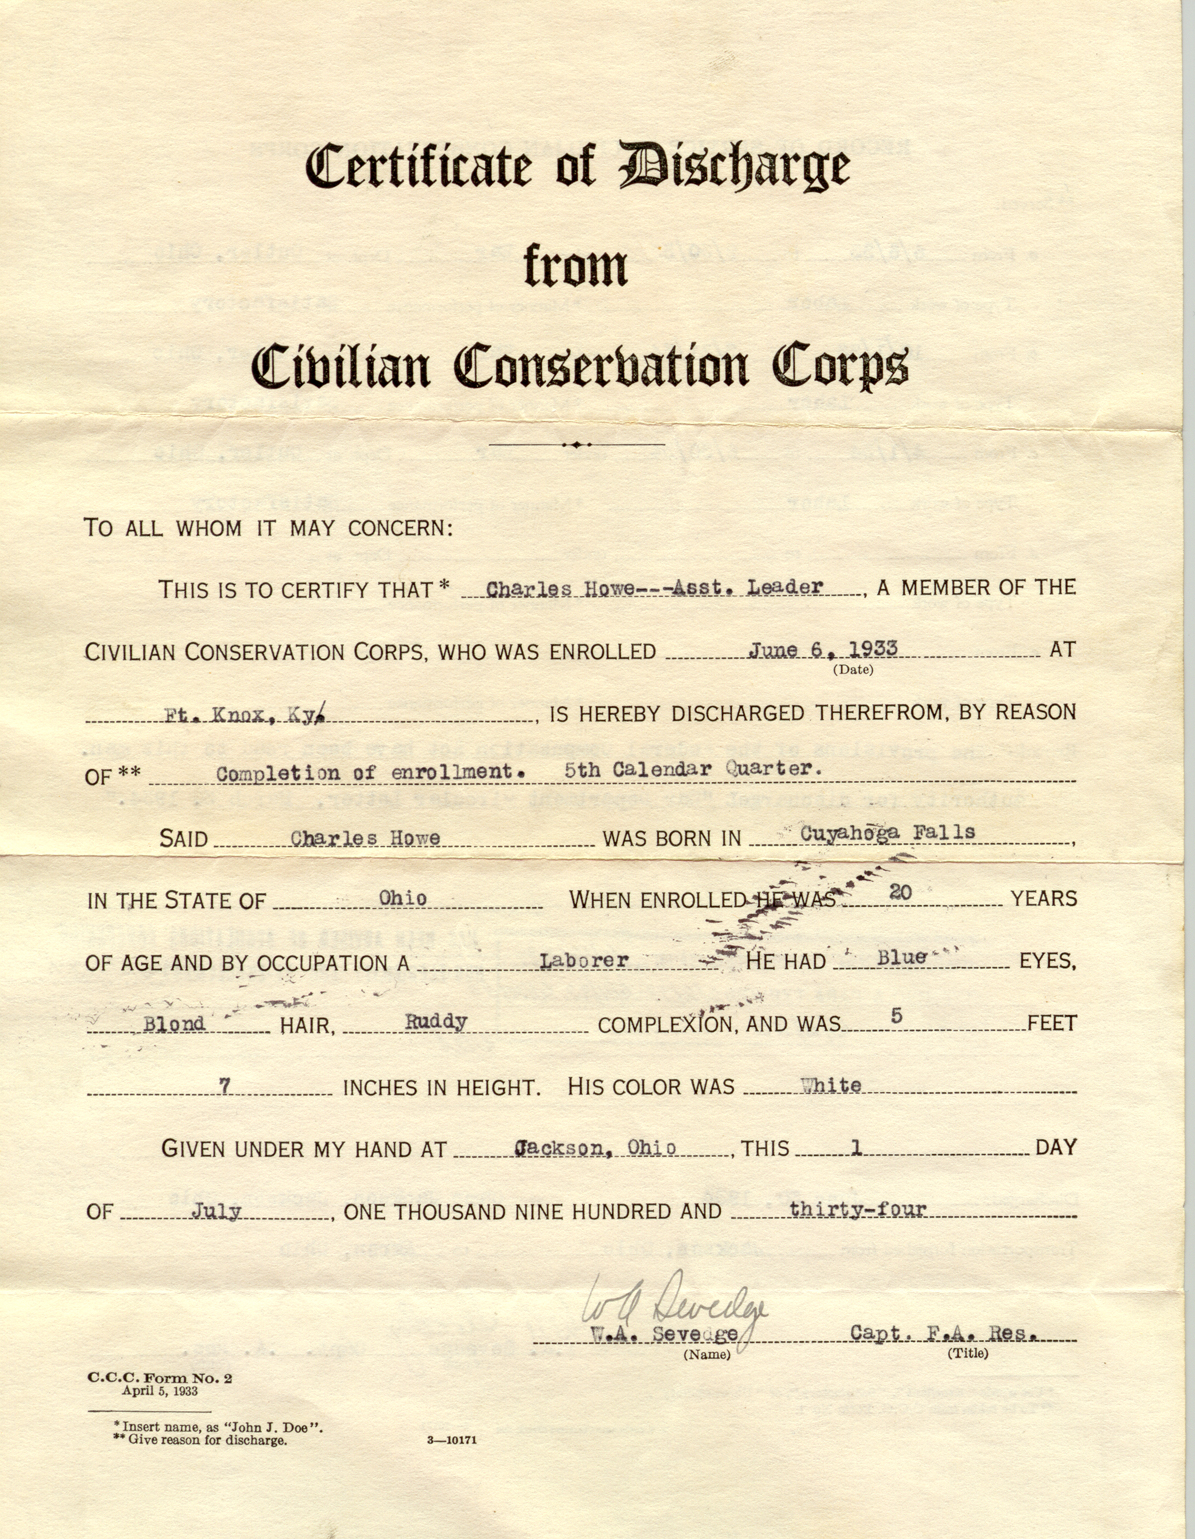 Certificate of Discharge
from
Civilian Conservation Corps
TO ALL WHOM IT MAY CONCERN:
THIS IS TO CERTIFY THAT* Charles Howe---Asst. Leader, A MEMBER OF THE
CIVILIAN CONSERVATION CORPS, WHO WAS ENROLLED June 6, 1933 AT
(Date)
Ft. Knox, Ky., IS HEREBY DISCHARGED THEREFROM, BY REASON
OF** Completion of enrollment. 5th Calendar Quarter.
SAID Charles Howe WAS BORN IN Cuyahoga Falls,
IN THE STATE OF Ohio WHEN ENROLLED HE WAS 20 YEARS
OF AGE AND BY OCCUPATION A Laborer HE HAD Blue EYES,
Blond HAIR, Ruddy COMPLEXION, AND WAS 5 FEET
7 INCHES IN HEIGHT. HIS COLOR WAS White
GIVEN UNDER MY HAND AT Jackson, Ohio, THIS 1 DAY
OF July, ONE THOUSAND NINE HUNDRED AND thirty-four
WA Sevedge
W.A. Sevedge Capt. F.A. Res.
(Name) (Title)
C.C.C. Form No. 2
April 5, 1933
*Insert name, as "John J. Doe".
**Give reason for discharge.
3—10171